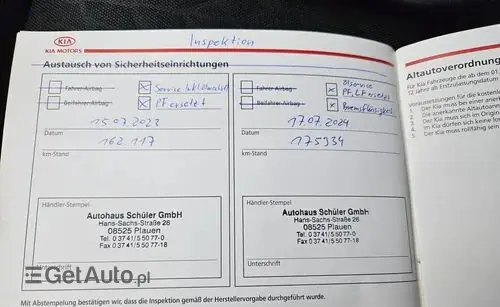 KIA
KIA MOTORS
Inspektion
Austausch von Sicherheitseinrichtungen
Fahrer-Airbag
Beifahrer-Airbag
PF ersetzt
15.07.2023
Datum
162.117
km-Stand
Händler-Stempel
Autohaus Schüler GmbH
Hans-Sachs-Straße 26
08525 Plauen
Tel. 0 37 41/5 50 77-0
Fax 0 37 41/5 50 77-18
Unterschrift
Fahrer-Airbag
Beifahrer-Airbag
Ölservice
PF, LF ersetzt
Bremsflüssigkeit
17.07.2024
Datum
175934
km-Stand
Händler-Stempel
Autohaus Schüler GmbH
Hans-Sachs-Straße 26
08525 Plauen
Tel. 0 37 41/5 50 77-0
Fax 0 37 41/5 50 77-18
Unterschrift
Mit Abstempelung bestätigen wir, dass die Inspektion gemäß der Herstellervorgabe durchgeführt wurde.
Altautoverordnung
Für Kia Fahrzeuge die ab dem 01.
12 Jahre ab Erstzulassung
Voraussetzungen für die kostenlo
1. Der Kia muss bei einer aner
2. Die anerkannte Altautoann
3. Im Kia dürfen sich keine
4. Der Kia muss rollfähig sein
GetAuto.pl